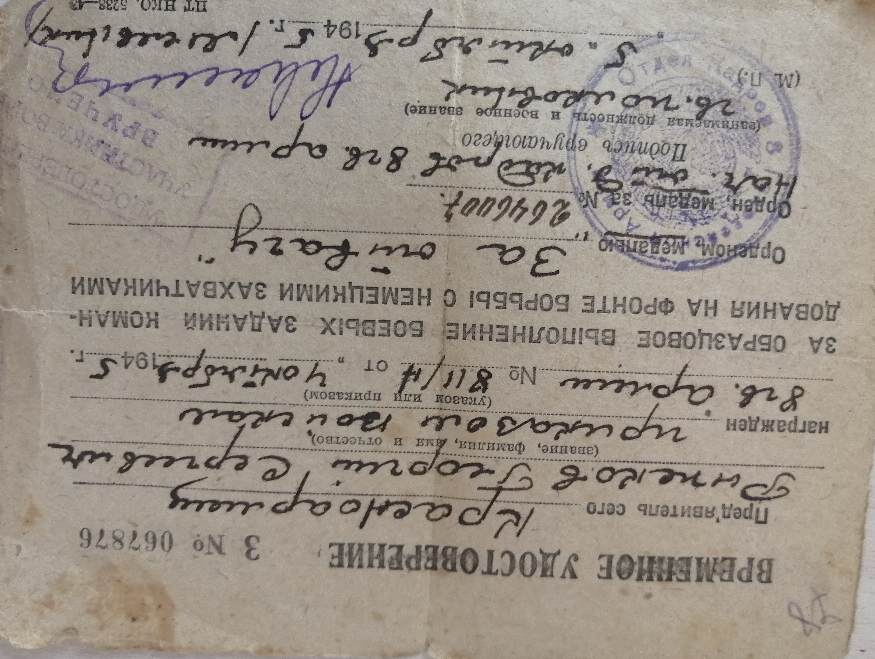 ВРЕМЕННОЕ УДОСТОВЕРЕНИЕ З № 067876
Пред'явитель сего Красноармеец
Георгий Сергеевич
(звание, фамилия, имя и отчество),
награжден приказом войскам
(указом или приказом)
8 гв. армии № 811/н от „4 октября 1945 г.
ЗА ОБРАЗЦОВОЕ ВЫПОЛНЕНИЕ БОЕВЫХ ЗАДАНИЙ КОМАН-
ДОВАНИЯ НА ФРОНТЕ БОРЬБЫ С НЕМЕЦКИМИ ЗАХВАТЧИКАМИ
Орденом, медалью „За отвагу"
Орден, медаль за № 2646007
Нач. отд. кадров 8 гв. армии
Подпись вручающего
(занимаемая должность и военное звание)
гв. полковник
(М. П.)
„5" октября 1945 г.
ПТ НКО. 5238—43
Отдел кадров 8
ВРУЧЕНО